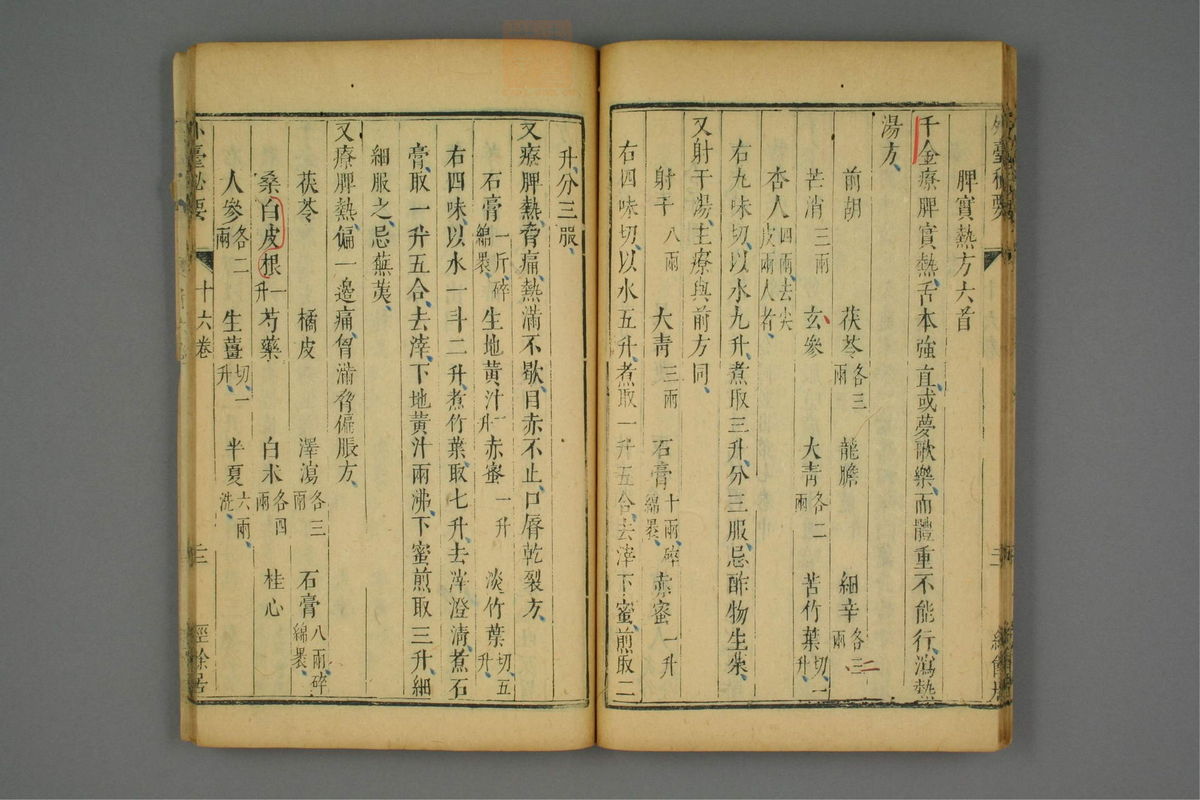 脾實熱方六首
千金療脾實熱舌本強直或夢歌樂而體重不能行瀉熱
湯方
前胡 茯苓各三兩 龍膽 細辛各三兩
芒消三兩 玄參 大青各二兩 苦竹葉切一升
杏人四兩去尖皮兩人者
右九味切以水九升煮取三升分三服忌酢物生菜
又射干湯主療與前方同
射干八兩 大青三兩 石膏十兩碎綿裹 赤蜜一升
右四味切以水五升煮取一升五合去滓下蜜煎取二
升分三服
又療脾熱脅痛熱滿不歇目赤不止口脣乾裂方
石膏一斤碎綿裹 生地黃汁一升 赤蜜一升 淡竹葉切五升
右四味以水一斗二升煮竹葉取七升去滓澄清煮石
膏取一升五合去滓下地黃汁兩沸下蜜煎取三升細
細服之忌蕪荑
又療脾熱偏一邊痛胷滿脅偏脹方
茯苓 橘皮 澤瀉各三兩 石膏八兩碎綿裹
桑白皮根一升 芍藥 白朮各四兩 桂心
人參各二兩 生薑切一升 半夏六兩洗
外臺秘要 十六卷 三 經餘居